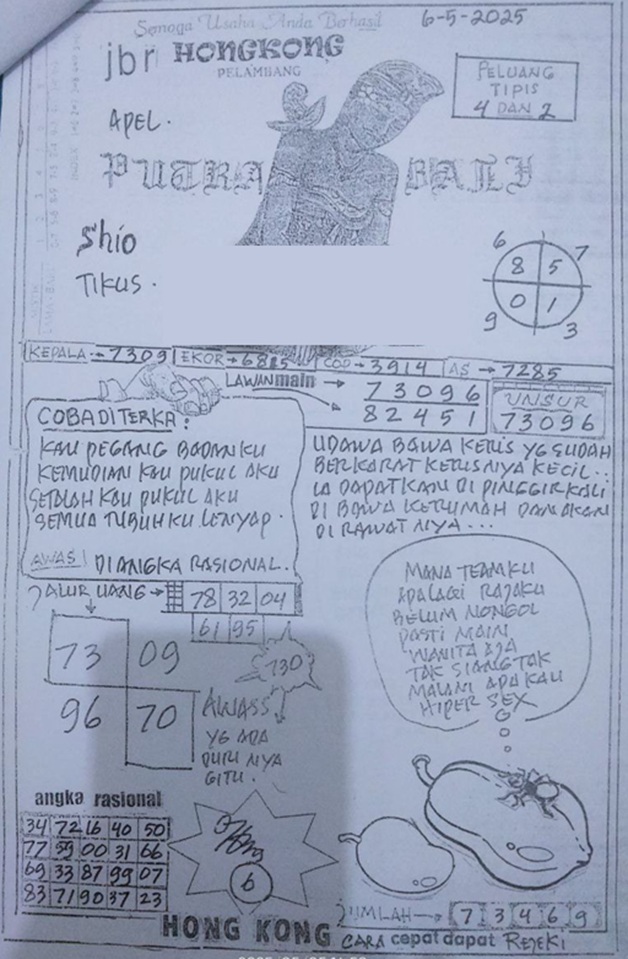 Semoga Usaha Anda Berhasil
6-5-2025
jbr HONGKONG
PELAMBANG
PELUANG
TIPIS
4 DAN 2
APEL.
PUTRA BALI
Shio
TIKUS.
6 7
8 5
0 1
9 3
KEPALA → 7309 EKOR → 6815 COP → 3914 AS → 7285
LAWAN main → 73096
82451
UNSUR
73096
COBA DITERKA:
KAU PEGANG BADANKU
KEMUDIAN KAU PUKUL AKU
SETELAH KAU PUKUL AKU
SEMUA TUBUHKU LENYAP.
AWAS! DIANGKA RASIONAL.
UDAWA BAWA KERIS YG SUDAH
BERKARAT KERISNYA KECIL..
IA DAPATKAN DI PINGGIR KALI
DI BAWA KERUMAH DAN AKAN
DI RAWATNYA...
JALUR UANG → 78 32 04
61 95
73 09
96 70
730
AWASS
YG ADA
DURI NYA
GITU.
MANA TEAMKU
APALAGI RAJAKU
BELUM NONGOL
PASTI MAIN
WANITA AJA
TAK SIANG TAK
MALAM APA KAU
HIPER SEX
angka rasional
34 72 16 40 50
77 59 00 31 66
69 33 87 99 07
83 71 90 37 23
6
JUMLAH → 7 3 4 6 9
HONG KONG CARA cepat dapat REJEKI